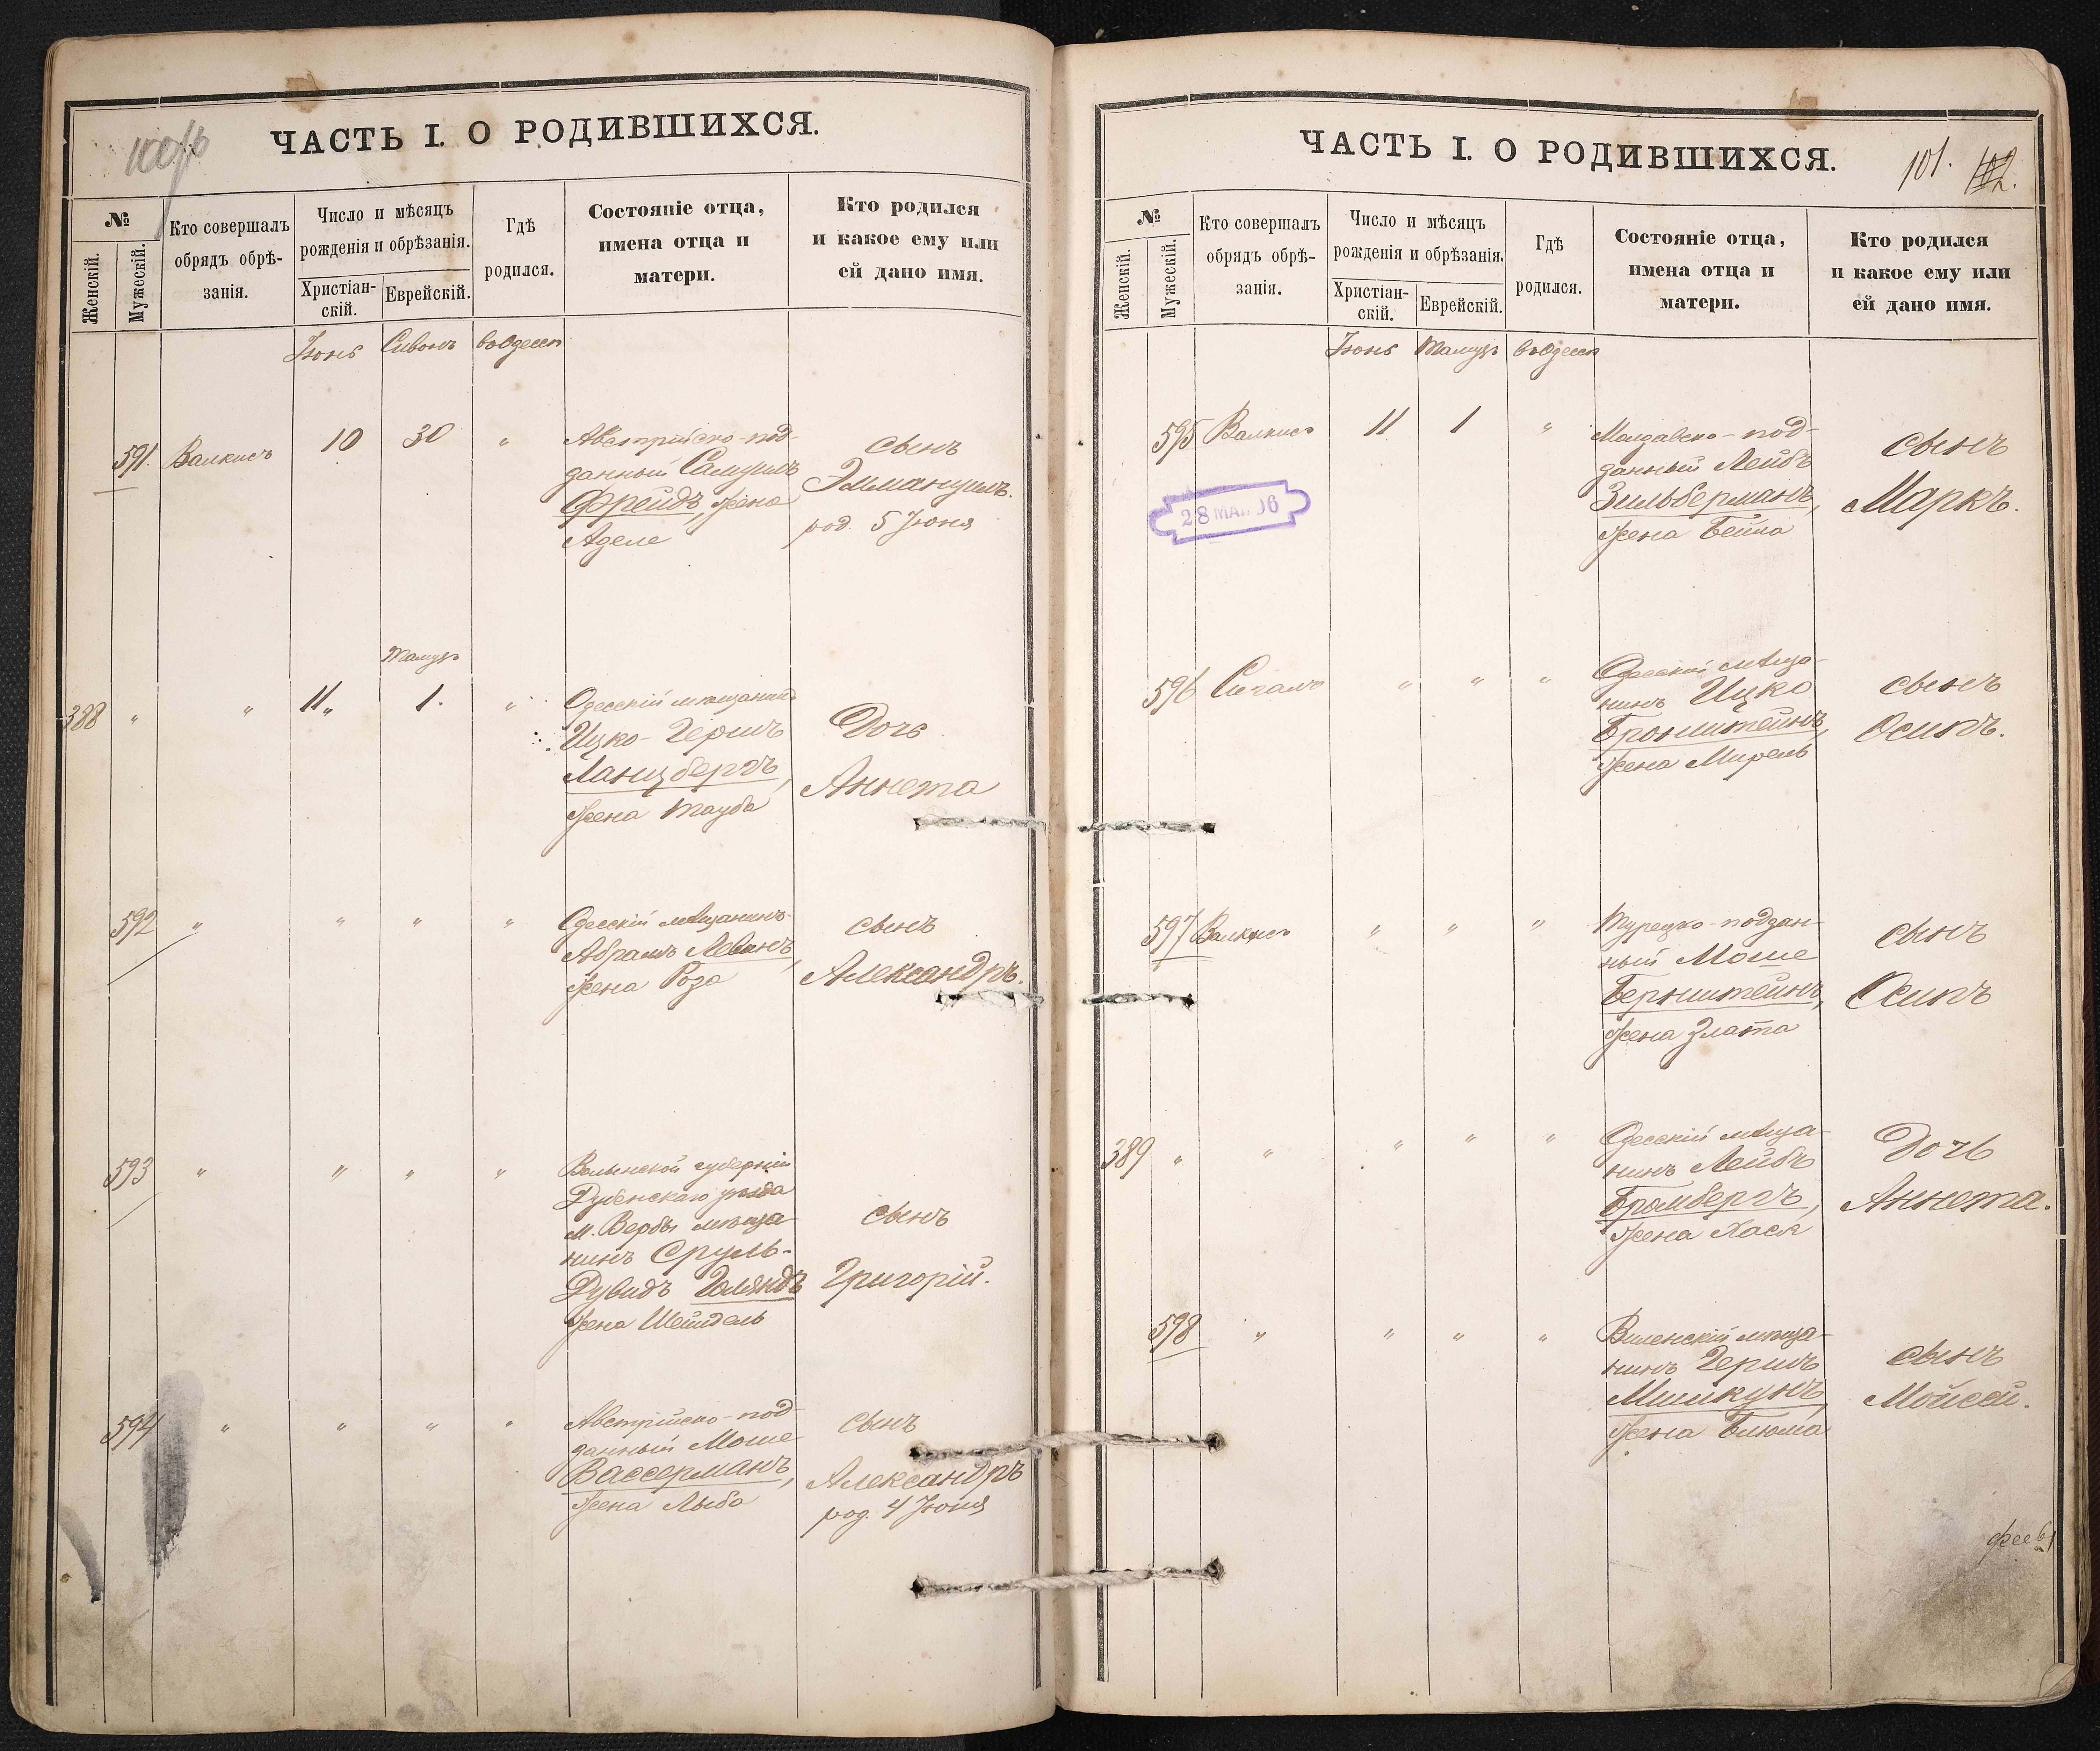 100/б
ЧАСТЬ I. О РОДИВШИХСЯ.
№
Женскій.
Мужескій.
Кто совершалъ
обрядъ обрѣ-
занія.
Число и мѣсяцъ
рожденія и обрѣзанія.
Христіан-
скій.
Еврейскій.
Гдѣ
родился.
Состояніе отца,
имена отца и
матери.
Кто родился
и какое ему или
ей дано имя.
Іюнь Сивонъ въ Одессѣ
591. Валкисъ 10 30 "
Австрійско-под-
данный Самуилъ
Фрейдъ, жена
Аделе
сынъ
Эммануилъ.
род. 5 Іюня
Тамузъ
388 " " 11 " 1. "
Одесскій мѣщанинъ
Ицко-Гершъ
Ланцбергъ,
жена Тауба
Дочь
Аннета
592 " " " "
Одесскій мѣщанинъ
Абрамъ Левинъ,
жена Роза
сынъ
Александръ.
593 " " " "
Волынской губерніи
Дубенскаго уѣзда
м. Вербы мѣща-
нинъ Сруль-
Дувидъ
жена Шейндель
сынъ
Григорій.
594 " " " "
Австрійско-под-
данный Моше
Вассерманъ,
жена Лыба
сынъ
Александръ
род. 4 Іюня
ЧАСТЬ I. О РОДИВШИХСЯ.
101. 102.
№
Женскій.
Мужескій.
Кто совершалъ
обрядъ обрѣ-
занія.
Число и мѣсяцъ
рожденія и обрѣзанія.
Христіан-
скій.
Еврейскій.
Гдѣ
родился.
Состояніе отца,
имена отца и
матери.
Кто родился
и какое ему или
ей дано имя.
Іюнь Тамузъ въ Одессѣ
595 Валкисъ 11 1 "
28 МАЯ 06
Молдавско-под-
данный Лейбъ
Зильберманъ,
жена Бейла
сынъ
Маркъ.
596 " " "
Одесскій мѣща-
нинъ Ицко
Бронштейнъ,
жена Мирель
сынъ
Осипъ.
597 Валкисъ " " "
Турецко-поддан-
ный Моше
Бернштейнъ,
жена Злата
сынъ
Осипъ
389 " " " " "
Одесскій мѣща-
нинъ Лейбъ
Бромбергъ,
жена Хася
Дочь
Аннета.
598 " " " "
Виленскій мѣща-
нинъ Гершъ
Мишкунъ,
жена Блюма
сынъ
Мойсей.